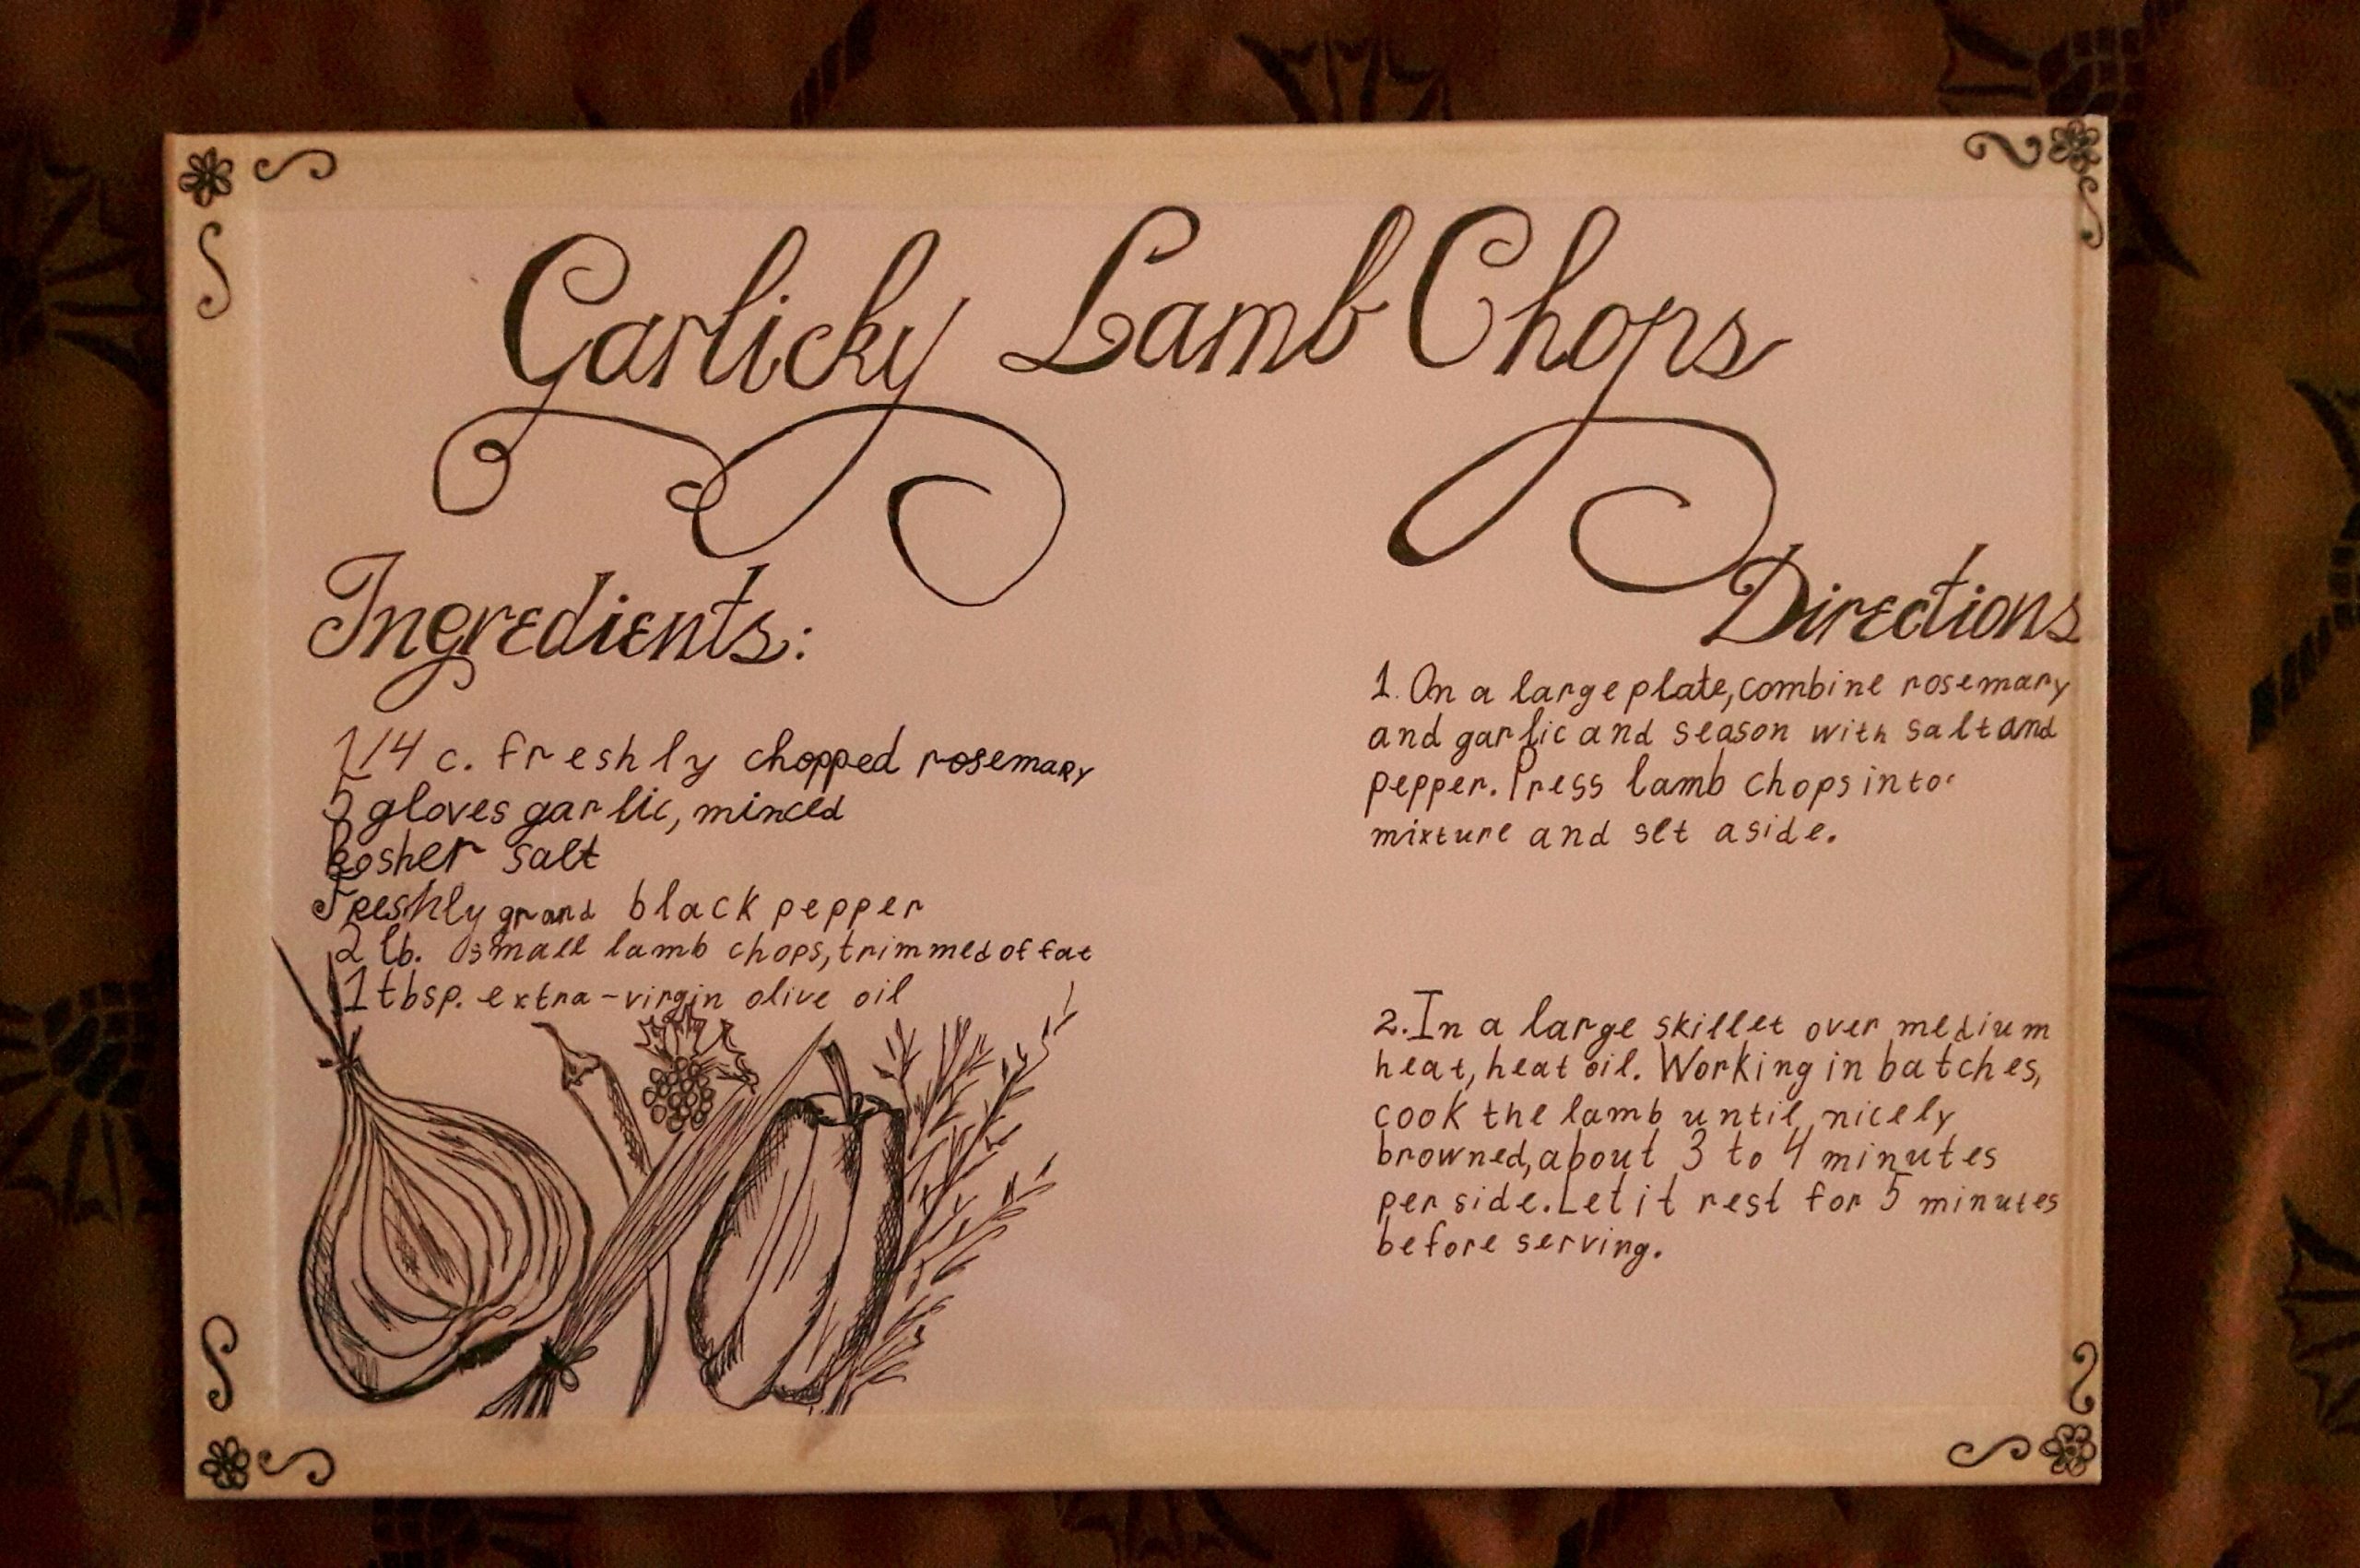 Garlicky Lamb Chops
Ingredients:
1/4 c. freshly chopped rosemary
5 gloves garlic, minced
kosher salt
Freshly grand black pepper
2 lb. small lamb chops, trimmed of fat
1 tbsp. extra-virgin olive oil
Directions
1. On a large plate, combine rosemary
and garlic and season with salt and
pepper. Press lamb chops into
mixture and set aside.
2. In a large skillet over medium
heat, heat oil. Working in batches,
cook the lamb until nicely
browned, about 3 to 4 minutes
per side. Let it rest for 5 minutes
before serving.